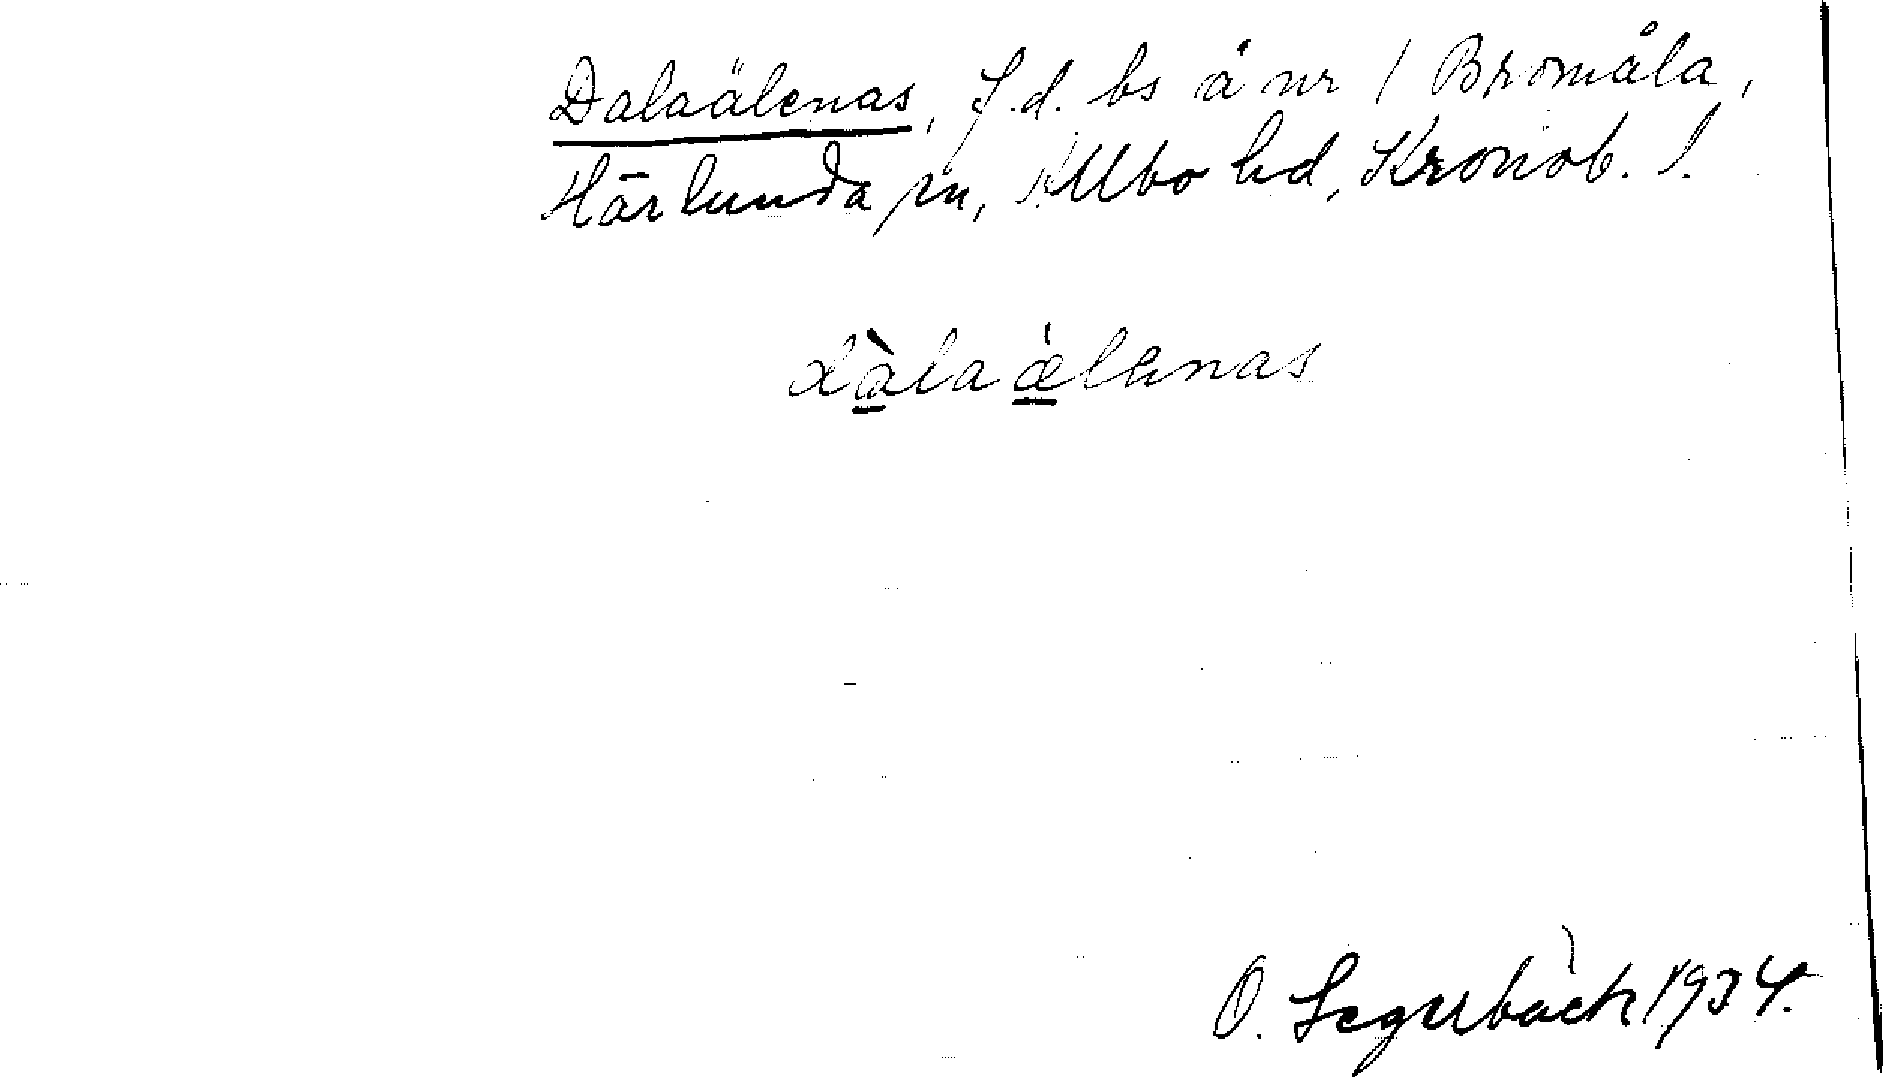 Dalaälenas, f.d. bs å nr 1 Bromåla,
Härlunda sn, Allbo hd, Kronob. l.
dàlaǽlenas
O. Segerbäck 1934.